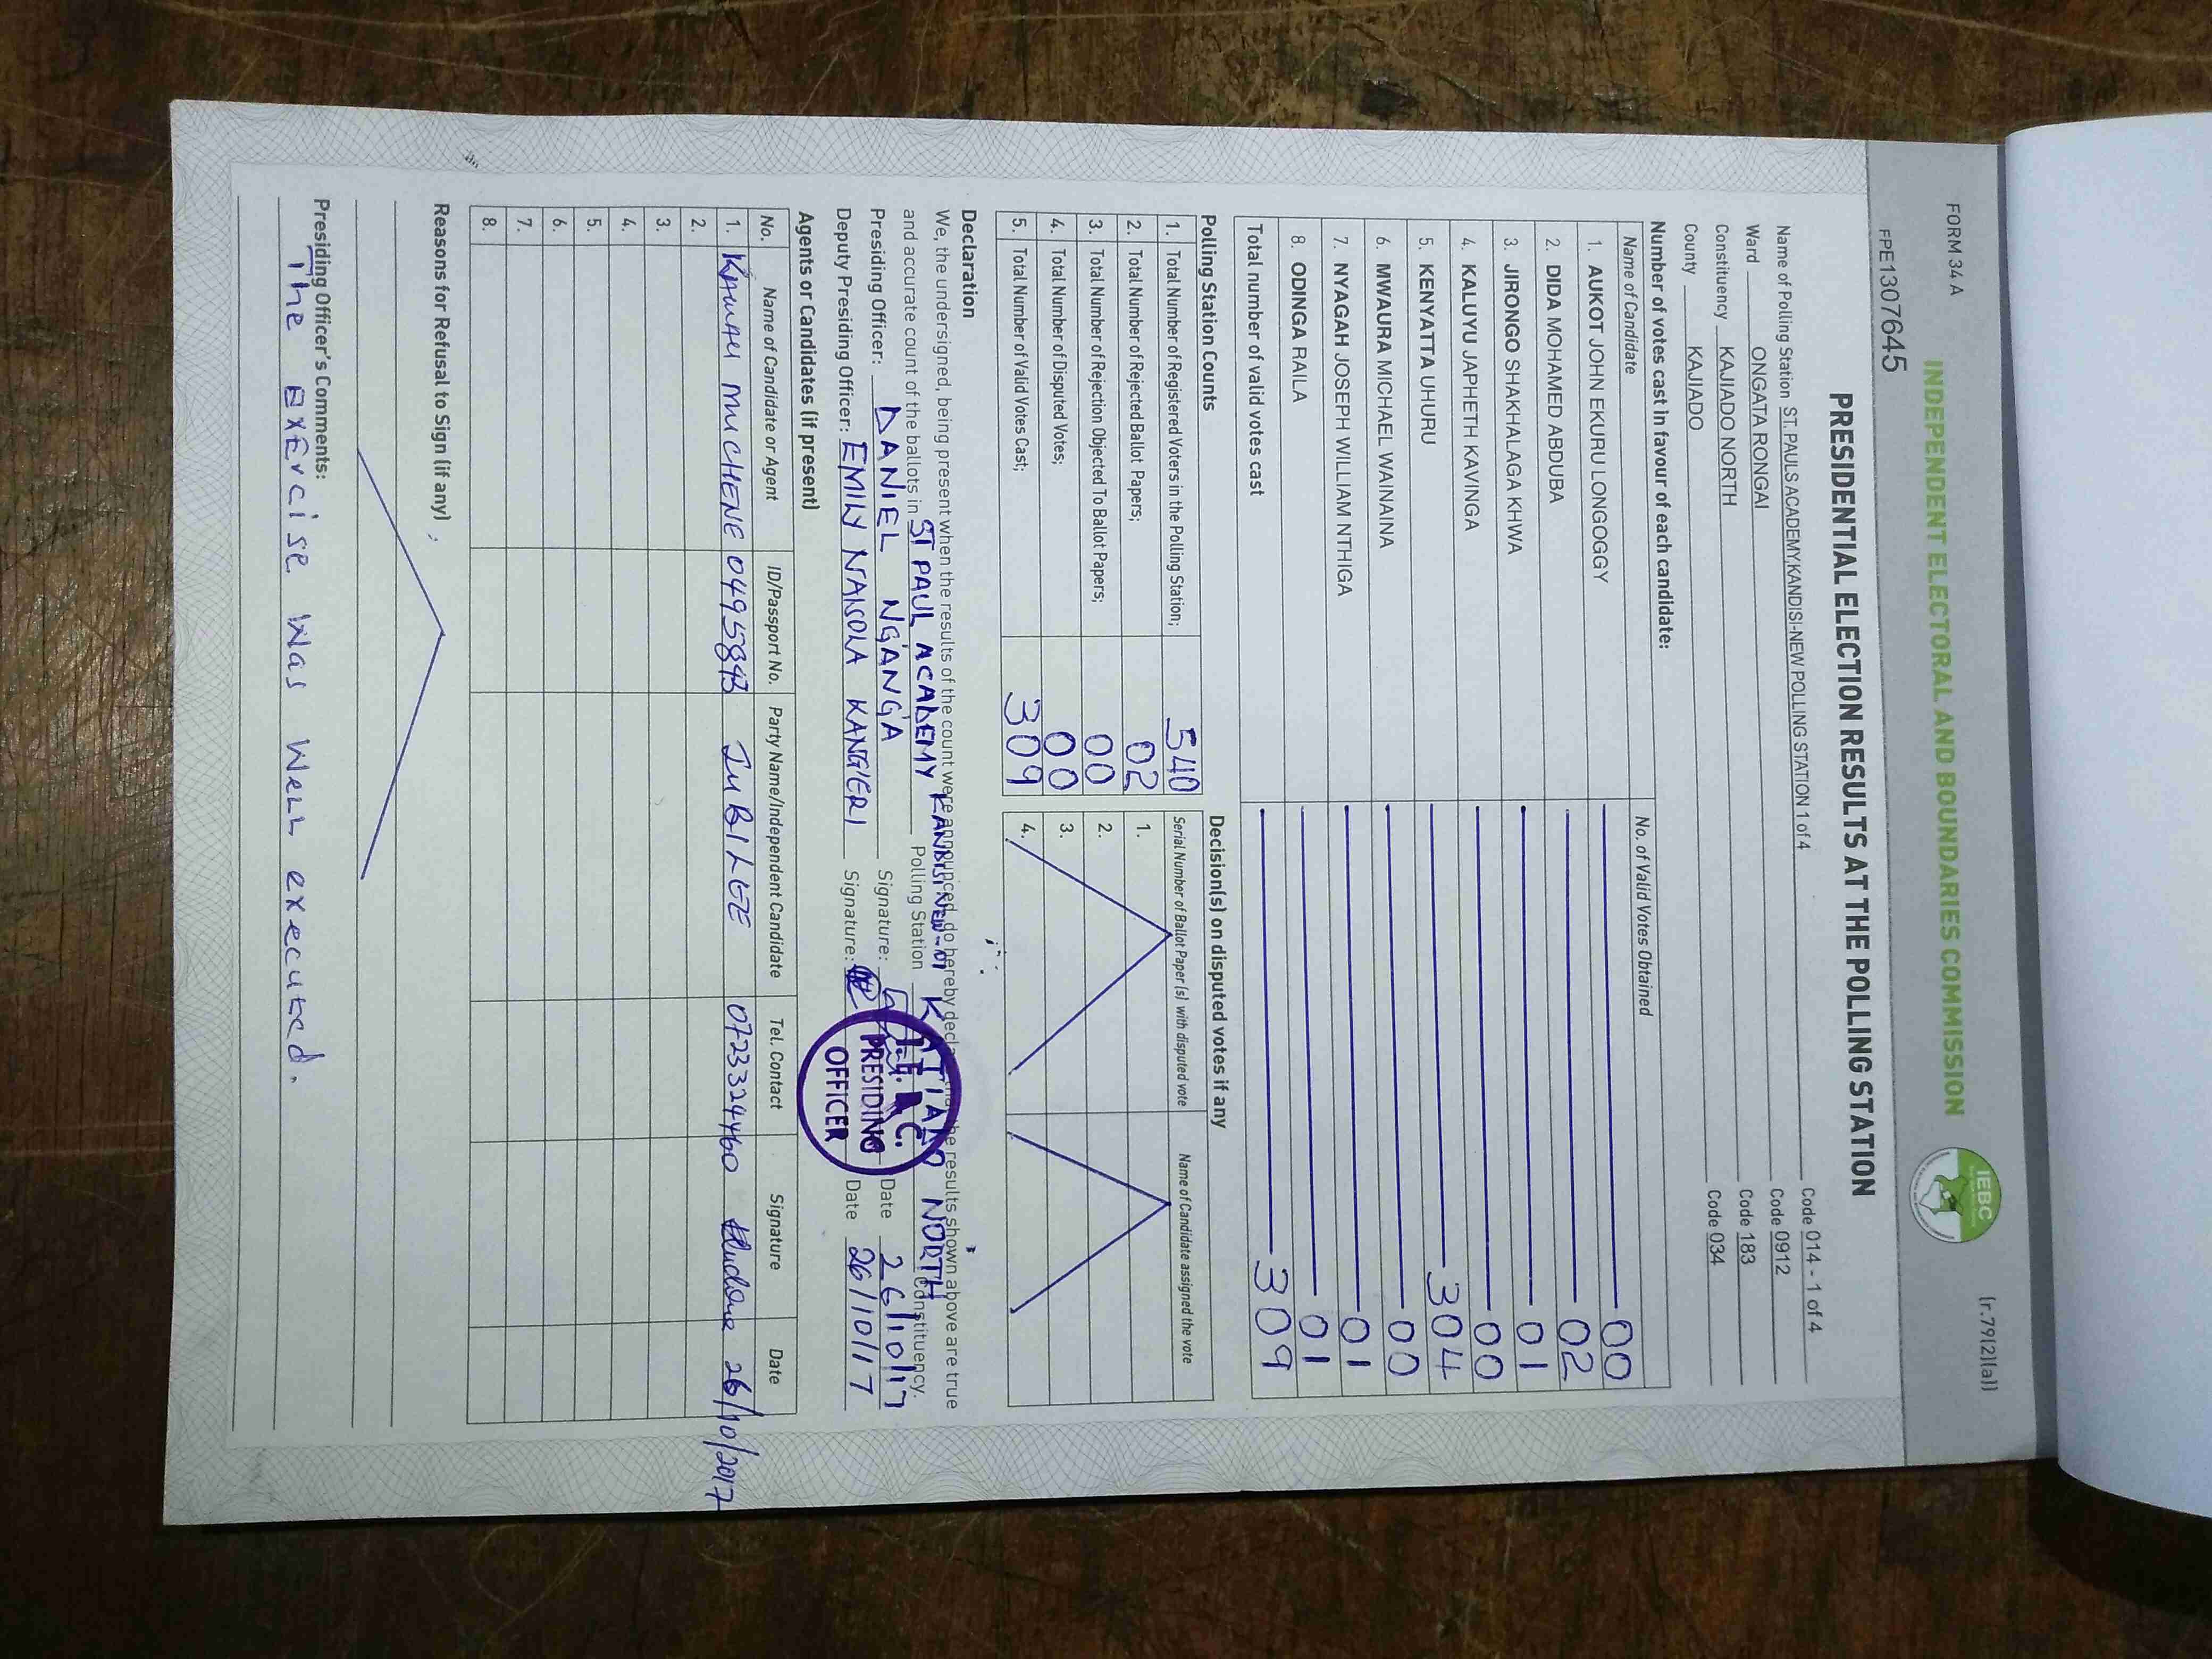 FORM 34 A
(r.79(2)(a))
INDEPENDENT ELECTORAL AND BOUNDARIES COMMISSION
IEBC
FPE1307645
PRESIDENTIAL ELECTION RESULTS AT THE POLLING STATION
Name of Polling Station ST. PAULS ACADEMY,KANDISI-NEW POLLING STATION 1 of 4 Code 014 - 1 of 4
Ward ONGATA RONGAI Code 0912
Constituency KAJIADO NORTH Code 183
County KAJIADO Code 034
Number of votes cast in favour of each candidate:
Name of Candidate No. of Valid Votes Obtained
1. AUKOT JOHN EKURU LONGOGGY 00
2. DIDA MOHAMED ABDUBA 02
3. JIRONGO SHAKHALAGA KHWA 01
4. KALUYU JAPHETH KAVINGA 00
5. KENYATTA UHURU 304
6. MWAURA MICHAEL WAINAINA 00
7. NYAGAH JOSEPH WILLIAM NTHIGA 01
8. ODINGA RAILA 01
Total number of valid votes cast 309
Polling Station Counts
1. Total Number of Registered Voters in the Polling Station; 540
2. Total Number of Rejected Ballot Papers; 02
3. Total Number of Rejection Objected To Ballot Papers; 00
4. Total Number of Disputed Votes; 00
5. Total Number of Valid Votes Cast; 309
Decision(s) on disputed votes if any
Serial Number of Ballot Paper (s) with disputed vote Name of Candidate assigned the vote
1.
2.
3.
4.
Declaration
We, the undersigned, being present when the results of the count were announced, do hereby declare that the results shown above are true
and accurate count of the ballots in ST PAUL ACADEMY KANDISI NEW-01 Polling Station KAJIADO NORTH Constituency.
Presiding Officer: DANIEL NG'ANG'A Signature: Date 26/10/17
Deputy Presiding Officer: EMILY NANCOLA KANG'ERI Signature: Date 26/10/17
PRESIDING
OFFICER
Agents or Candidates (if present)
No. Name of Candidate or Agent ID/Passport No. Party Name/Independent Candidate Tel. Contact Signature Date
1. KAMAU MUCHENE 04958843 JUBILEE 0723324460 26/10/2017
2.
3.
4.
5.
6.
7.
8.
Reasons for Refusal to Sign (if any)
Presiding Officer's Comments:
The Exercise Was Well executed.